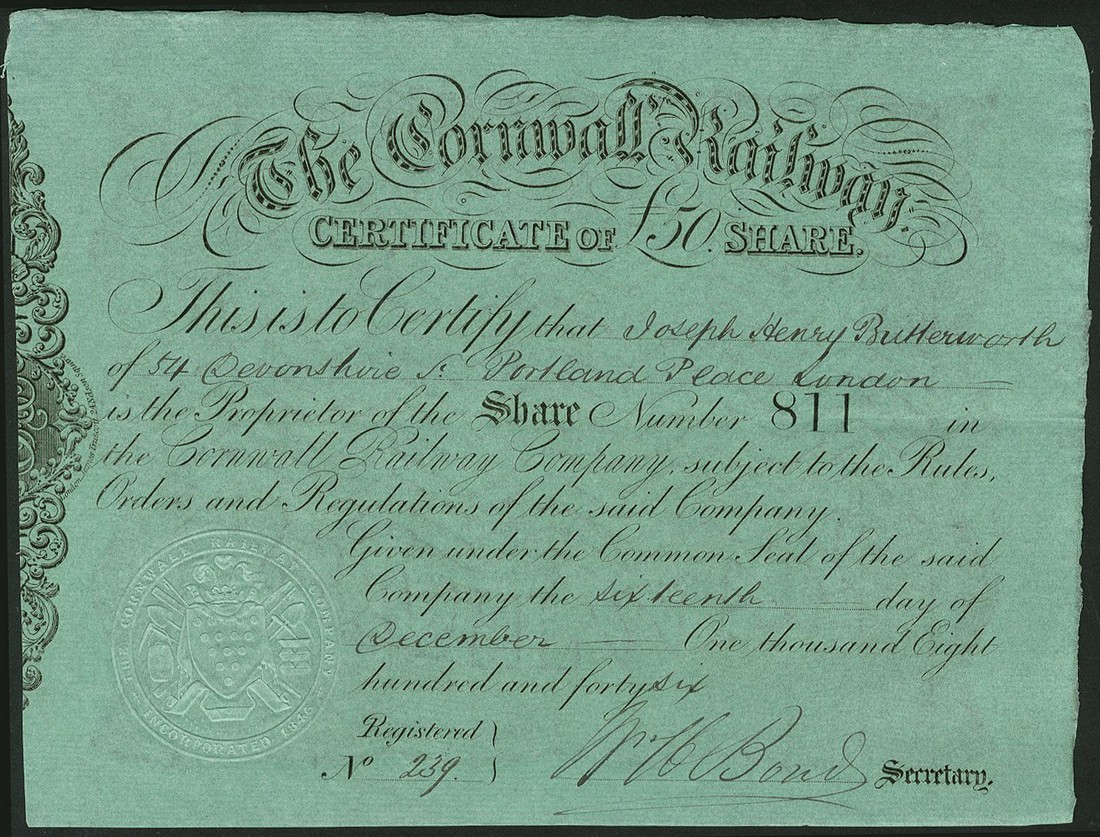 The Cornwall Railway.
CERTIFICATE OF £50. SHARE.
This is to Certify that Joseph Henry Butterworth
of 54 Devonshire St. Portland Place London
is the Proprietor of the Share Number 811 in
the Cornwall Railway Company, subject to the Rules,
Orders and Regulations of the said Company.
Given under the Common Seal of the said
Company the sixteenth day of
December One thousand Eight
hundred and forty six
Registered
No 239.
Wm H Bond Secretary.
THE CORNWALL RAILWAY COMPANY
INCORPORATED 1846